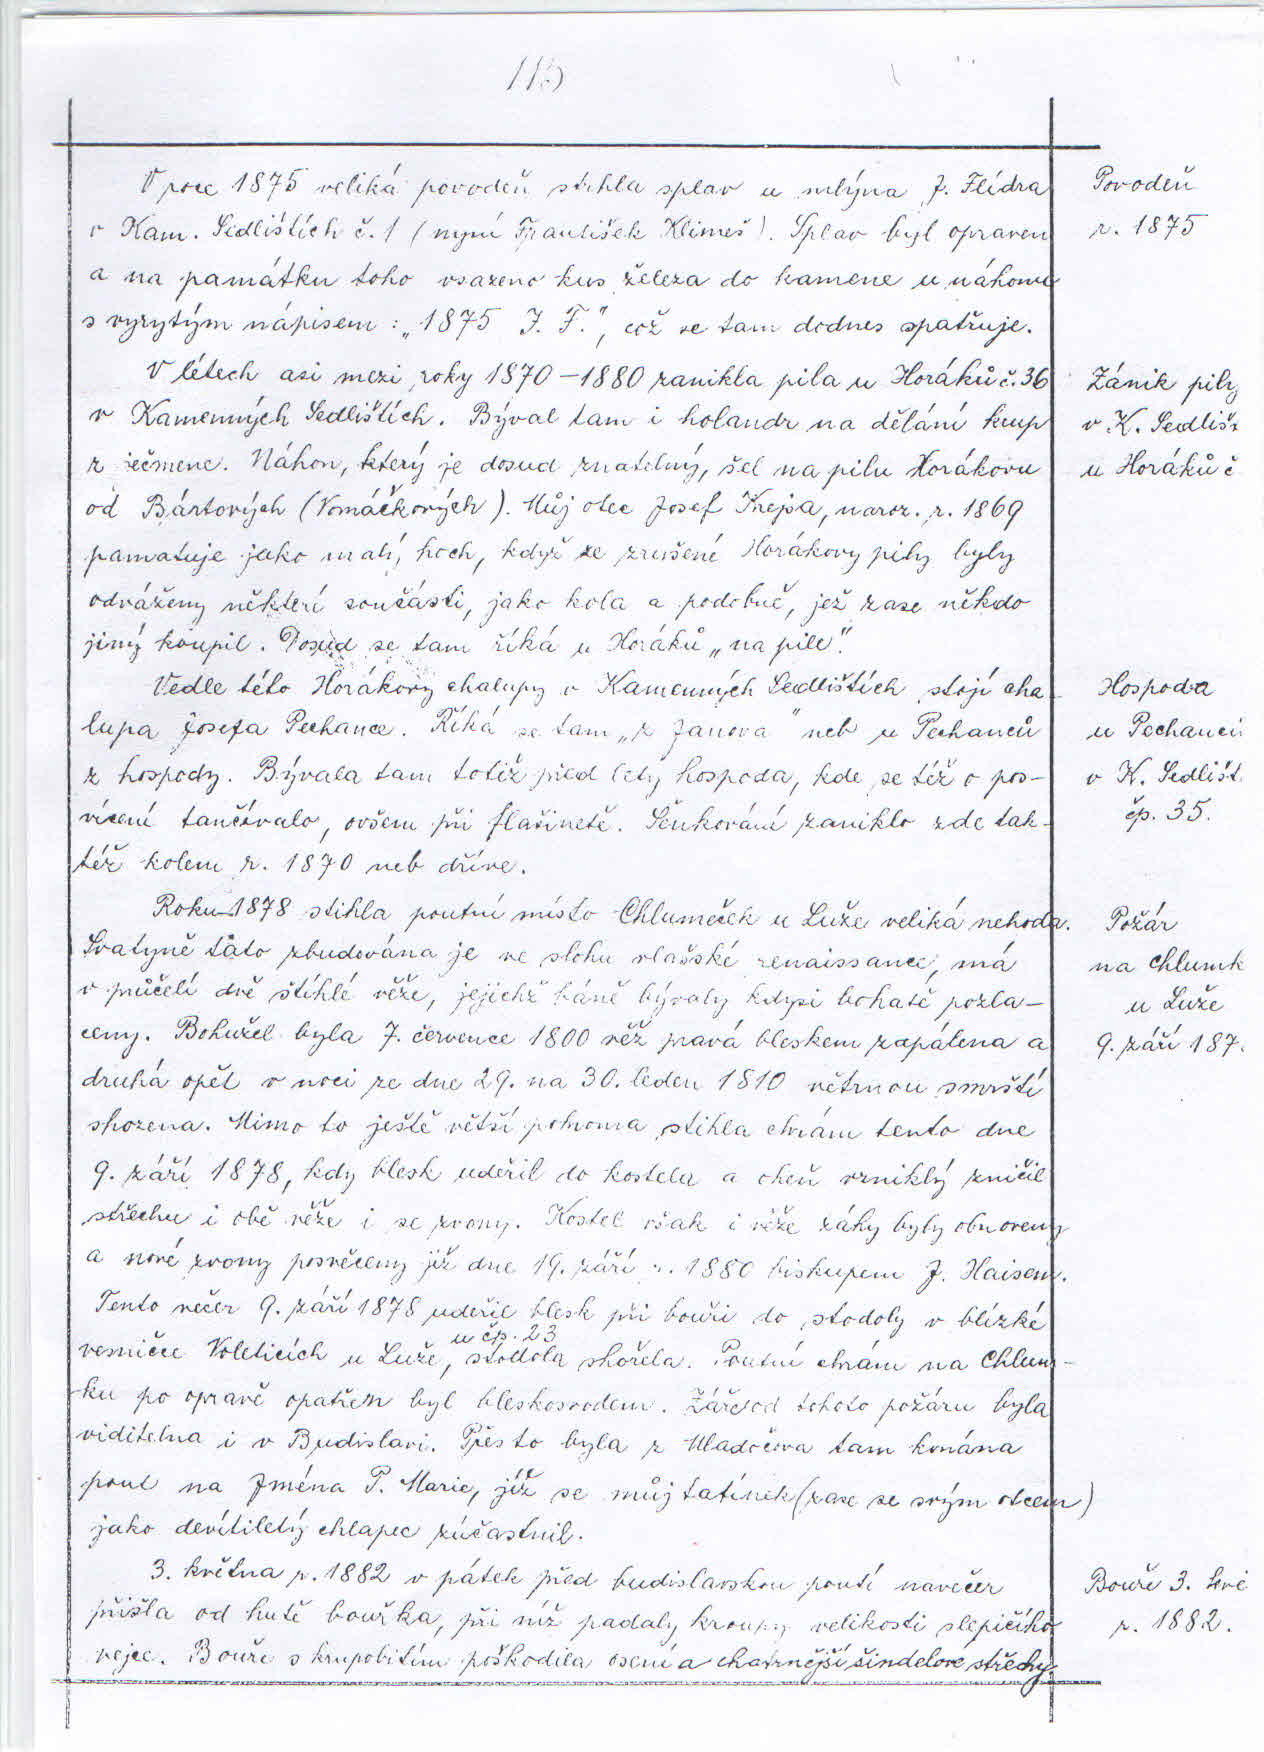 V roce 1875 veliká povodeň stihla splav u mlýna J. Flídra
v Kam. Sedlištích č. 1 (nyní František Klimeš). Splav byl opraven
a na památku toho vsazeno kus železa do kamene u náhonu
s vyrytým nápisem: „1875 J. F.", což se tam dodnes spatřuje.
Povodeň
r. 1875
V létech asi mezi roky 1870-1880 zanikla pila u Horáků č. 36
v Kamenných Sedlištích. Býval tam i holandr na dělání krup
z ječmene. Náhon, který je dosud znatelný, šel na pilu Horákovu
od Bártových (Vomáčkových). Můj otec Josef Krejsa, naroz. r. 1869
pamatuje jako malý hoch, když ze zrušené Horákovy pily byly
odváženy některí součásti, jako kola a podobně, jež zase někdo
jiný koupil. Dosud se tam říká u Horáků „na pile".
Zánik pily
v K. Sedlišt
u Horáků č
Vedle této Horákovy chalupy v Kamenných Sedlištích stojí cha-
lupa Josefa Pechance. Říká se tam „z Janova" neb u Pechanců
z hospody. Bývala tam totiž před lety hospoda, kde se též o pos-
vícení tančívalo, ovšem při flašinetě. Šenkování zaniklo zde tak-
též kolem r. 1870 neb dříve.
Hospoda
u Pechanců
v K. Sedlišt.
čp. 35.
Roku 1878 stihla poutní místo Chlumeček u Luže veliká nehoda.
Svatyně táto zbudována je ve slohu vlašské renaissance, má
v průčelí dvě štíhlé věže, jejichž báně bývaly kdysi bohatě pozla-
ceny. Bohužel byla 7. července 1800 věž pravá bleskem zapálena a
druhá opět v noci ze dne 29. na 30. leden 1810 větrnou smrští
shozena. Mimo to ještě větší pohroma stihla chrám tento dne
9. září 1878, kdy blesk udeřil do kostela a oheň vzniklý zničil
střechu i obě věže i se zvony. Kostel však i věže záhy byly obnoveny
a nové zvony posvěceny již dne 19. září r. 1880 biskupem J. Haisem.
Tento večer 9. září 1878 udeřil blesk při bouři do stodoly v blízké
vesničce Voleticích u Luže, u čp. 23 stodola shořela. Poutní chrám na Chlum-
ku po opravě opatřen byl bleskosvodem. Záře od tohoto požáru byla
viditelna i v Budislavi. Přes to byla z Mladočova tam konána
pout na Jména P. Marie, jíž se můj tatínek (zase se svým otcem)
jako devítiletý chlapec zúčastnil.
Požár
na Chlumk
u Luže
9. září 187.
3. května r. 1882 v pátek před budislavskou poutí navečer
přišla od hutě bouřka, při níž padaly kroupy velikosti slepičího
vejce. Bouře s krupobitím poškodila osení a chatrnější šindelové střechy
Bouře 3.
r. 1882.